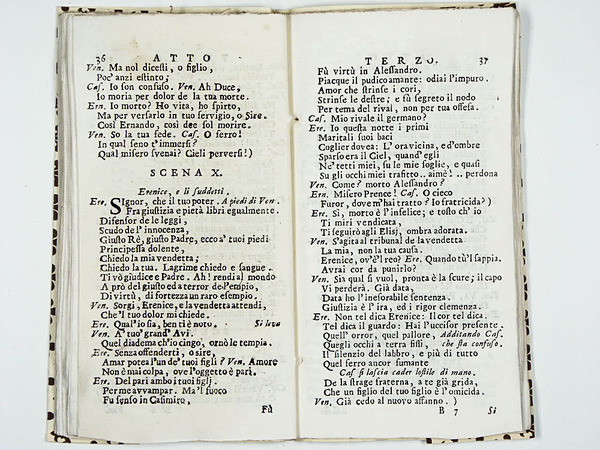 36 ATTO
Ven. Ma nol dicesti, o figlio,
Poc' anzi estinto;
Cas. Io son confuso. Ven. Ah Duce,
Io moria per dolor de la tua morte.
Ern. Io morto? Ho vita, ho spirto,
Ma per versarlo in tuo servigio, o Sire.
Così Ernando, così dee sol morire.
Ven. So la tua fede. Cas. O ferro!
In qual seno t'immersi?
Qual misero svenai? Cieli perversi!)
SCENA X.
Erenice, e li suddetti.
Ere. SIgnor, che il tuo poter. A piedi di Ven.
Fra giustizia e pietà libri egualmente.
Difensor de le leggi,
Scudo de l' innocenza,
Giusto Rè, giusto Padre, ecco a' tuoi piedi
Principessa dolente,
Chiedo la mia vendetta;
Chiedo la tua. Lagrime chiedo e sangue.
Ti vò giudice e Padre. Ah! rendi al mondo
A prò del giusto ed a terror de l'empio,
Di virtù, di fortezza un raro esempio.
Ven. Sorgi, Erenice, e la vendetta attendi,
Che 'l tuo dolor mi chiede.
Ere. Qual' io sia, ben ti è noto. Si leva
Ven. A' tuo' grand' Avi.
Quel diadema ch'io cingo, ornò le tempia.
Ere. Senza offenderti, o sire,
Amar potea l'un de' tuoi figli? Ven. Amore
Non è mai colpa, ove l'oggetto è pari.
Ere. Del pari ambo i tuoi figlj
Per me avvampar. Ma'l fuoco
Fu senso in Casimiro,
Fù
TERZO. 37
Fù virtù in Alessandro.
Piacque il pudico amante: odiai l'impuro.
Amor che strinse i cori,
Strinse le destre; e fù segreto il nodo
Per tema del rival, non per tua offesa.
Cas. Mio rivale il germano?
Ere. Io questa notte i primi
Maritali suoi baci
Coglier dovea: L'ora vicina, ed'ombre
Sparso era il Ciel, quand' egli
Ne' tetti miei, su le mie soglie, e quasi
Su gli occhi miei trafitto.. aimè! .. perdona
Ven. Come? morto Alessandro?
Ern. Misero Prence! Cas. O cieco
Furor, dove m'hai tratto? Io fratricida?)
Ere. Sì, morto è l'infelice; e tosto ch' io
Ti mirì vendicata,
Ti seguirò agli Elisj, ombra adorata.
Ven. S'agita al tribunal de la vendetta
La mia, non la tua causa.
Erenice, ov'è'l reo? Ere. Quando tù'l sappia.
Avrai cor da punirlo?
Ven. Sia qual si vuol, pronta è la scure; il capo
Vi perderà. Già data,
Data ho l'inesorabile sentenza.
Giustizia è l' ira, ed i rigor clemenza.
Ere. Non tel dica Erenice: Il cor tel dica.
Tel dica il guardo: Hai l'uccisor presente.
Quell' orror, quel pallore, Additando Cas.
Quegli occhi a terra fissi, che sta confuso.
Il silenzio del labbro, e più di tutto
Quel ferro ancor fumante
Cas si lascia cader lo stile di mano.
De la strage fraterna, a te già grida,
Che un figlio del tuo figlio è l'omicida.
Ven. Già cedo al nuovo affanno. )
B 7 Si